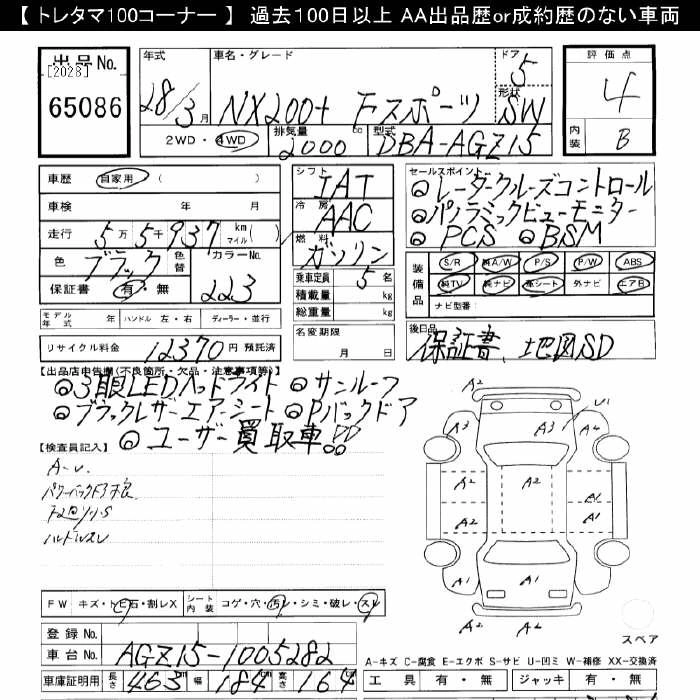 【 トレタマ100コーナー 】 過去100日以上 AA出品歴or成約歴のない車両
出品No. [2028] 65086
年式 28/3月 車名・グレード NX200t Fスポーツ ドア 5 形状 SW
2WD・4WD 排気量 2000 cc 型式 DBA-AGZ15
評価点 4 内装 B
車歴 自家用 ( )
車検 年 月
走行 5万5千937 km マイル( )
色 ブラック 色替 カラーNo. 223
保証書 有・無
シフト IAT
冷房 AAC
燃料 ガソリン
乗車定員 5 名
積載量 kg
総重量 kg
セールスポイント
◎レーダークルーズコントロール
◎パノラミックビューモニター
◎PCS ◎BSM
装備品 S/R 純A/W P/S P/W ABS
純TV 純ナビ 革シート 外ナビ エアB
ナビ型番:
モデル年式 年 ハンドル 左・右 ディーラー・並行
名変期限 月 日
後日品 保証書、地図SD
リサイクル料金 12370 円 預託済
【出品店申告欄(不良箇所・欠品・注意事項等)】
◎3眼LEDヘッドライト ◎サンルーフ
◎ブラックレザーエアーシート ◎Pバックドア
◎ユーザー買取車!!
【検査員記入】
A-U.
パワーバックドア不良
ハンドルスレ
A2
A3 A3 U1
A2 A2 A2
A1
A2 A2 A1
A1 A2 A1
A2
FW キズ・トビ石・割レX シート内装 コゲ・穴・汚レ・シミ・破レ・スレ
登録No.
車台No. AGZ15-1005282
車庫証明用 長さ 463 cm 幅 184 cm 高さ 164
スペア
A-キズ C-腐食 E-エクボ S-サビ U-凹ミ W-補修 XX-交換済
工具 有・無 ジャッキ 有・無